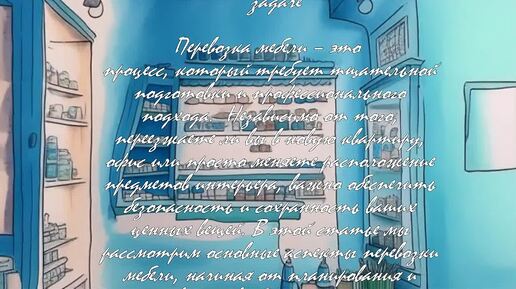 задаче
Перевозка мебели – это
процесс, который требует тщательной
подготовки и профессионального
подхода. Независимо от того,
переезжаете ли вы в новую квартиру,
офис или просто меняете расположение
предметов интерьера, важно обеспечить
безопасность и сохранность ваших
ценных вещей. В этой статье мы
рассмотрим основные аспекты перевозки
мебели, начиная от планирования и